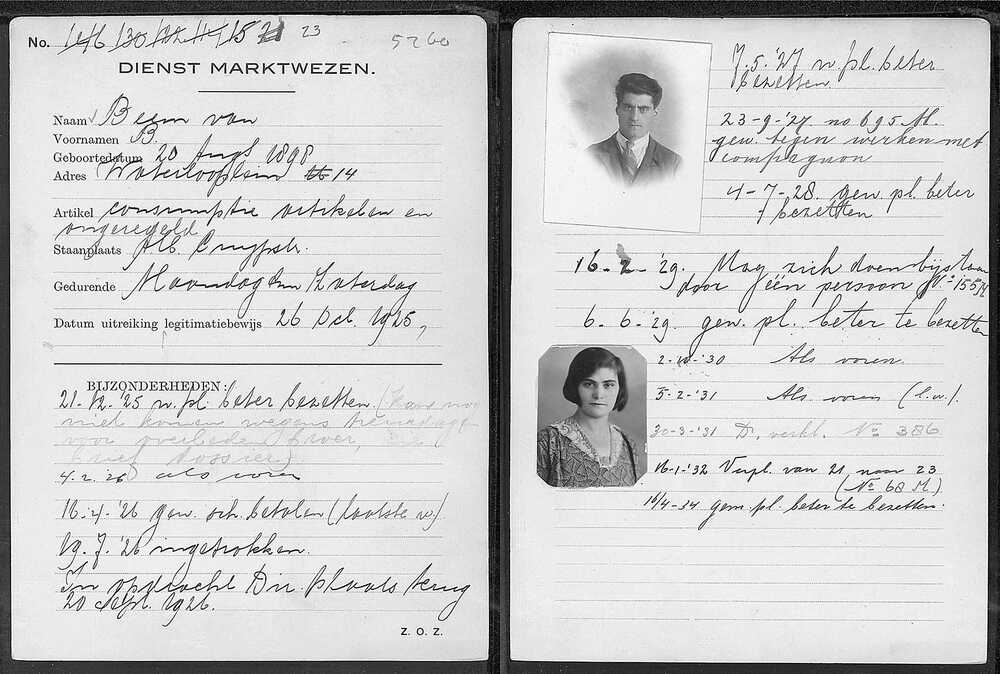 No. 146 130 122 117 15 21 23 5260
DIENST MARKTWEZEN.
Naam Beem van
Voornamen B.
Geboortedatum 20 Aug. 1898
Adres Waterlooplein 14
Artikel consumptie artikelen en
ongeregeld
Staanplaats Alb. Cuypstr.
Gedurende Maandag t/m Zaterdag
Datum uitreiking legitimatiebewijs 26 Oct. 1925,
BIJZONDERHEDEN:
21-12-'25 w. pl. beter bezetten. (Kan nog
niet komen wegens
voor overleden broer, zie
brief dossier)
4.2.'26 als voren
16-4-'26 gew. sch. betalen (laatste w)
19.7.'26 ingetrokken.
In opdracht Dir. plaats terug
20 Sept. 1926.
Z. O. Z.
7.5.'27 w. pl. beter
bezetten.
23-9-'27 no 695 M.
gew. tegen werken met
compagnon
4-7-'28. gew. pl. beter
bezetten
16-2-'29. Mag zich doen bijstaan
door één persoon No 155 M
6-6-'29. gew. pl. beter te bezetten
2-10-'30 Als voren
5-2-'31 Als voren (l.w).
30-3-'31 D. verkl. No 386
16-1-'32 Verpl. van 21 naar 23
(No 68 M)
10/4-34 gew. pl. beter te bezetten.